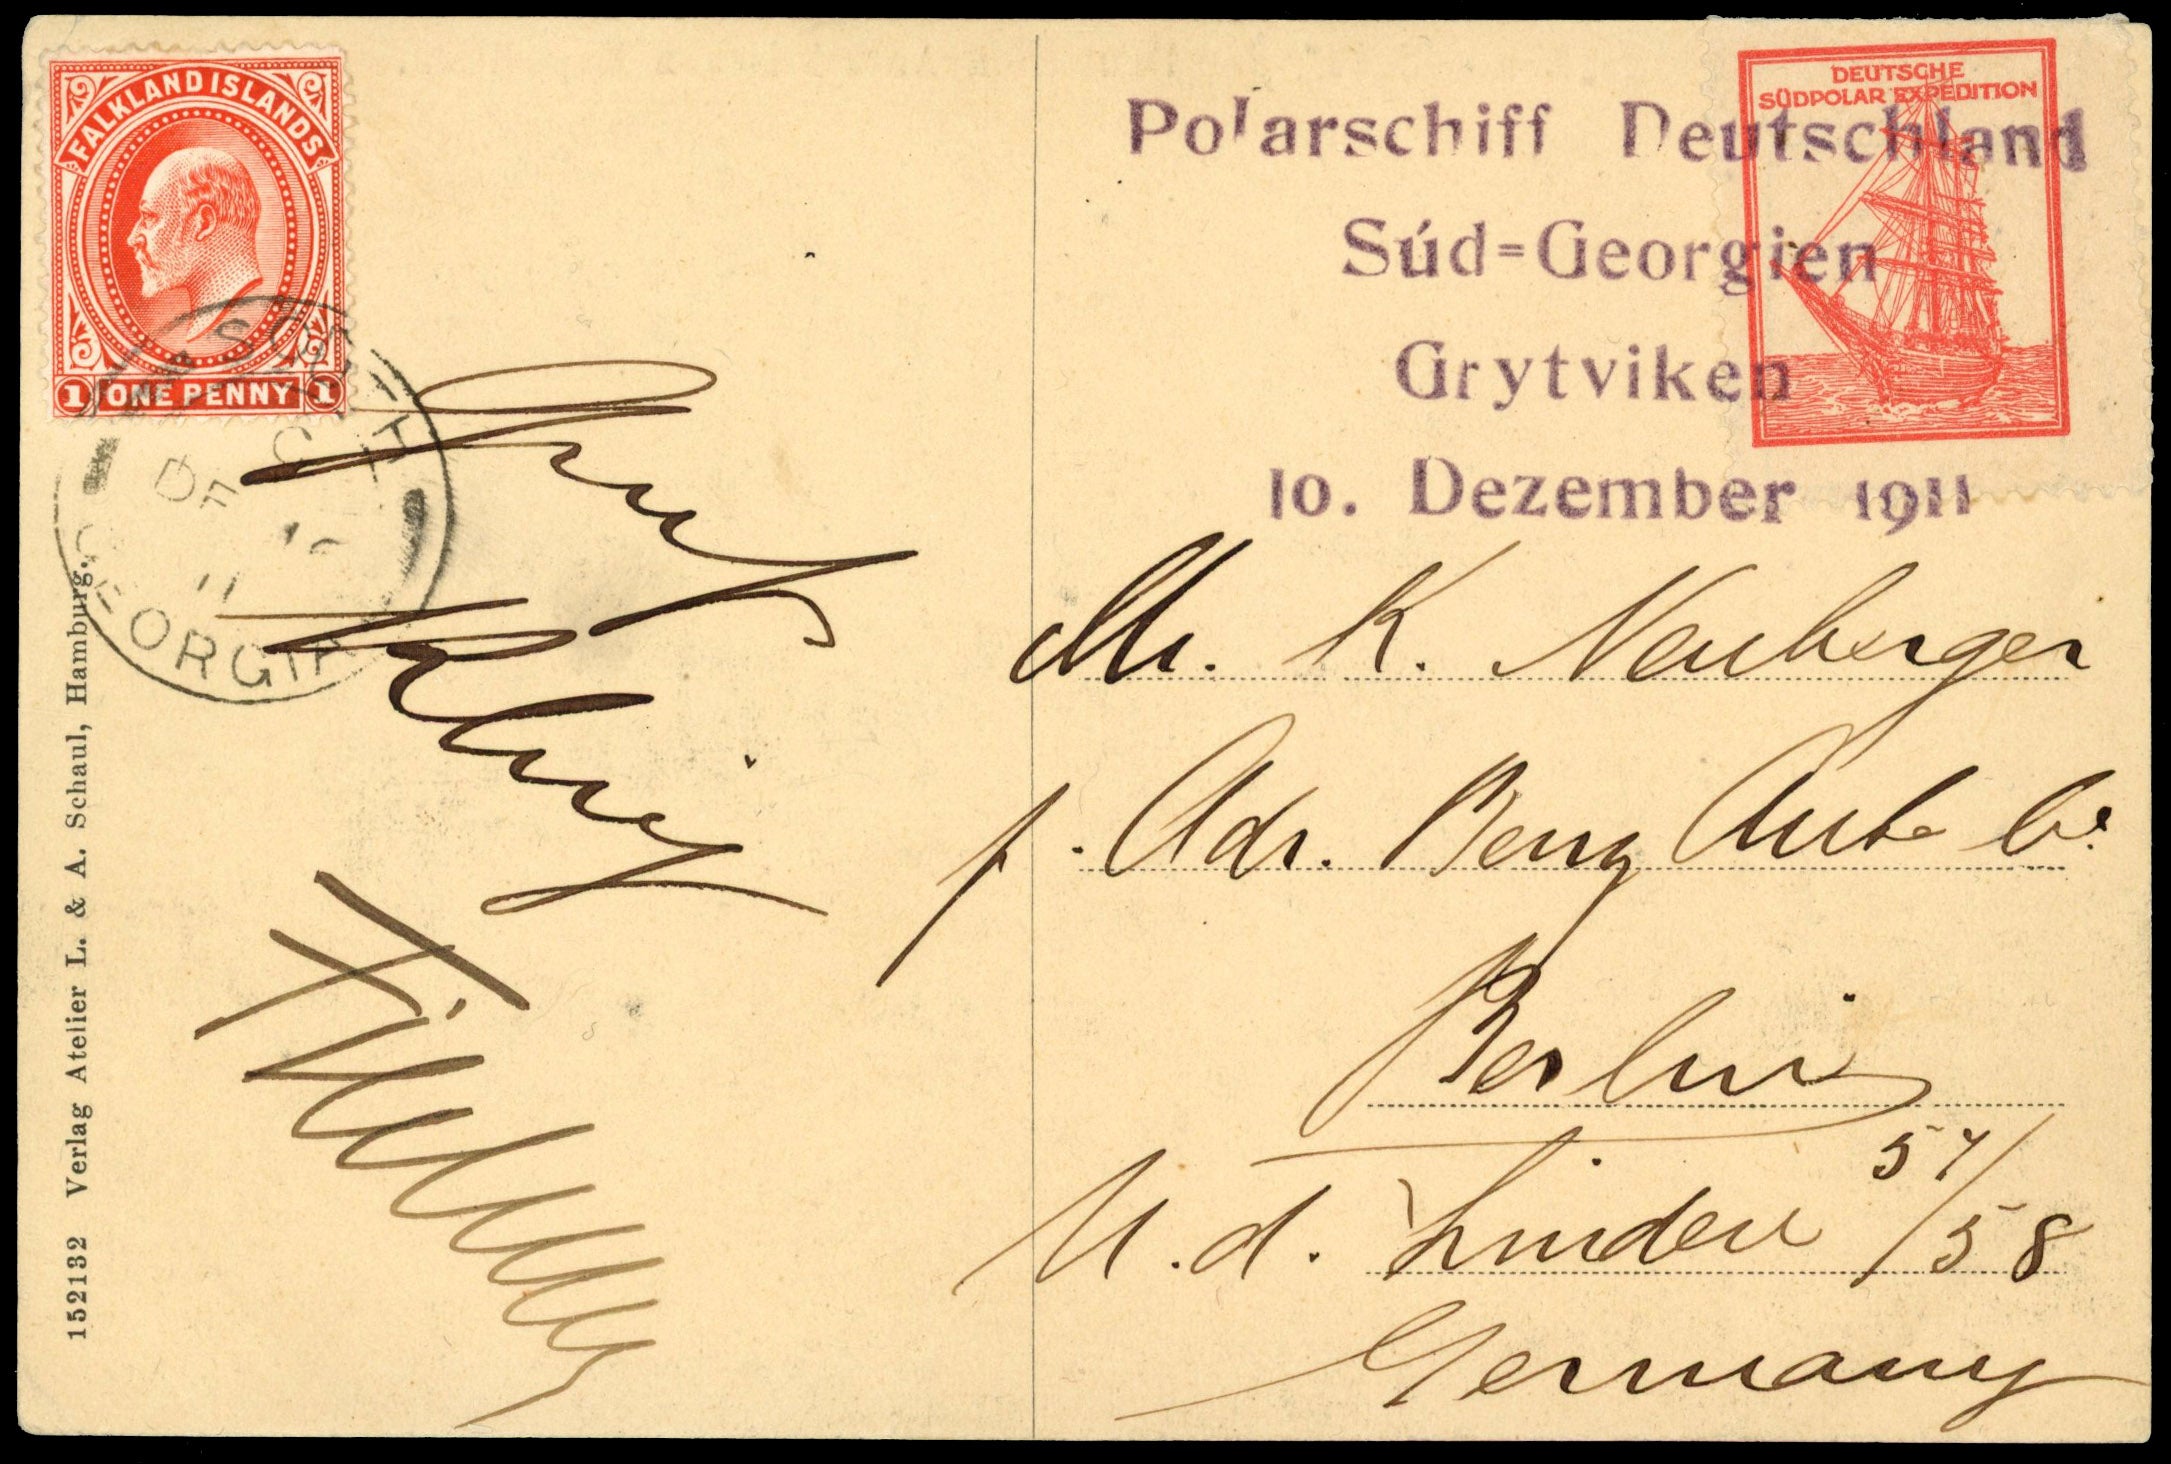 FALKLAND ISLANDS
1 ONE PENNY 1
SOUTH
DE 10
11
GEORGIA
DEUTSCHE
SÜDPOLAR EXPEDITION
Polarschiff Deutschland
Süd=Georgien
Grytviken
10. Dezember 1911
Mr. K. Neuberger
Adr. Benz Auto
Berlin
U. d. Linden 57/58
Germany
Gruß
152132 Verlag Atelier L. & A. Schaul, Hamburg.